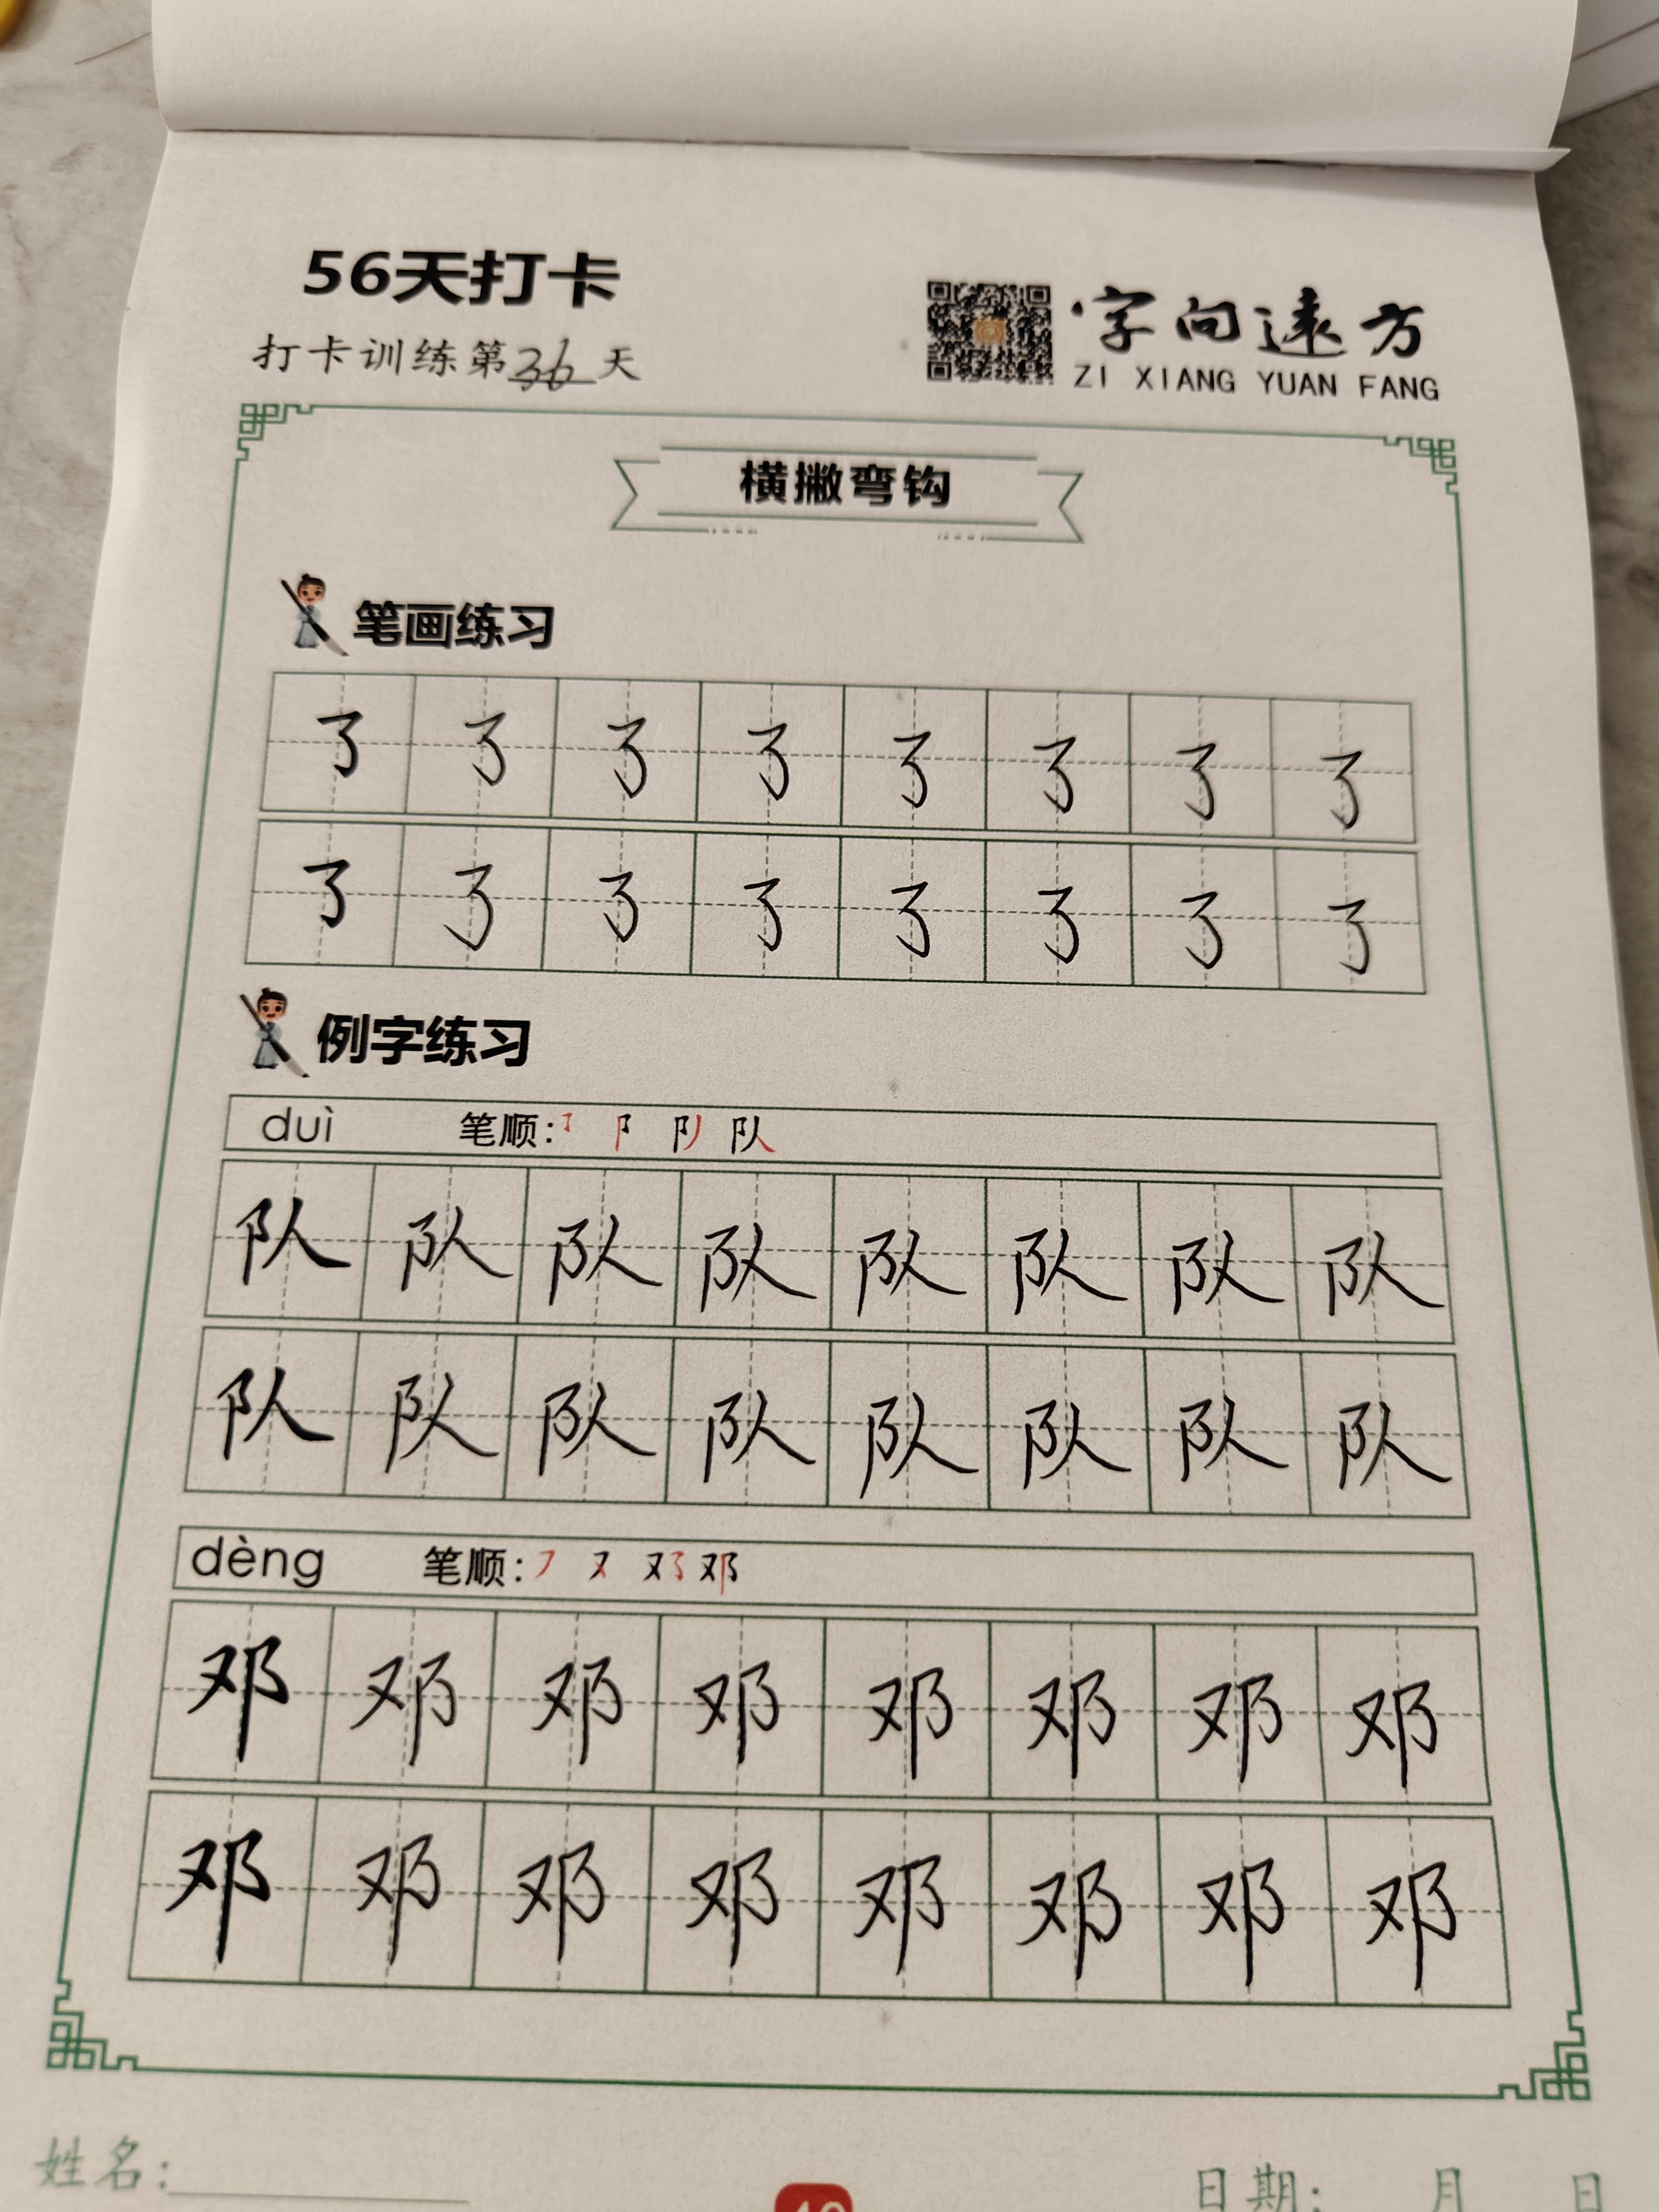 56天打卡
打卡训练第36天
字向远方
ZI XIANG YUAN FANG
横撇弯钩
笔画练习
㇌ ㇌ ㇌ ㇌ ㇌ ㇌ ㇌ ㇌
㇌ ㇌ ㇌ ㇌ ㇌ ㇌ ㇌ ㇌
例字练习
duì 笔顺: ㇌ 阝 队 队
队 队 队 队 队 队 队 队
队 队 队 队 队 队 队 队
dèng 笔顺: ㇇ 又 邓
邓 邓 邓 邓 邓 邓 邓 邓
邓 邓 邓 邓 邓 邓 邓 邓
姓名:
日期: 月 日